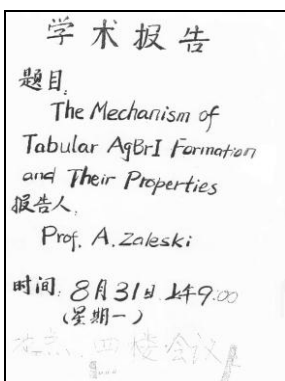 学术报告
题目:
The Mechanism of
Tabular AgBrI Formation
and Their Properties
报告人:
Prof. A. Zaleski
时间: 8月31日 上午9:00
(星期一)
地点: 四楼会议